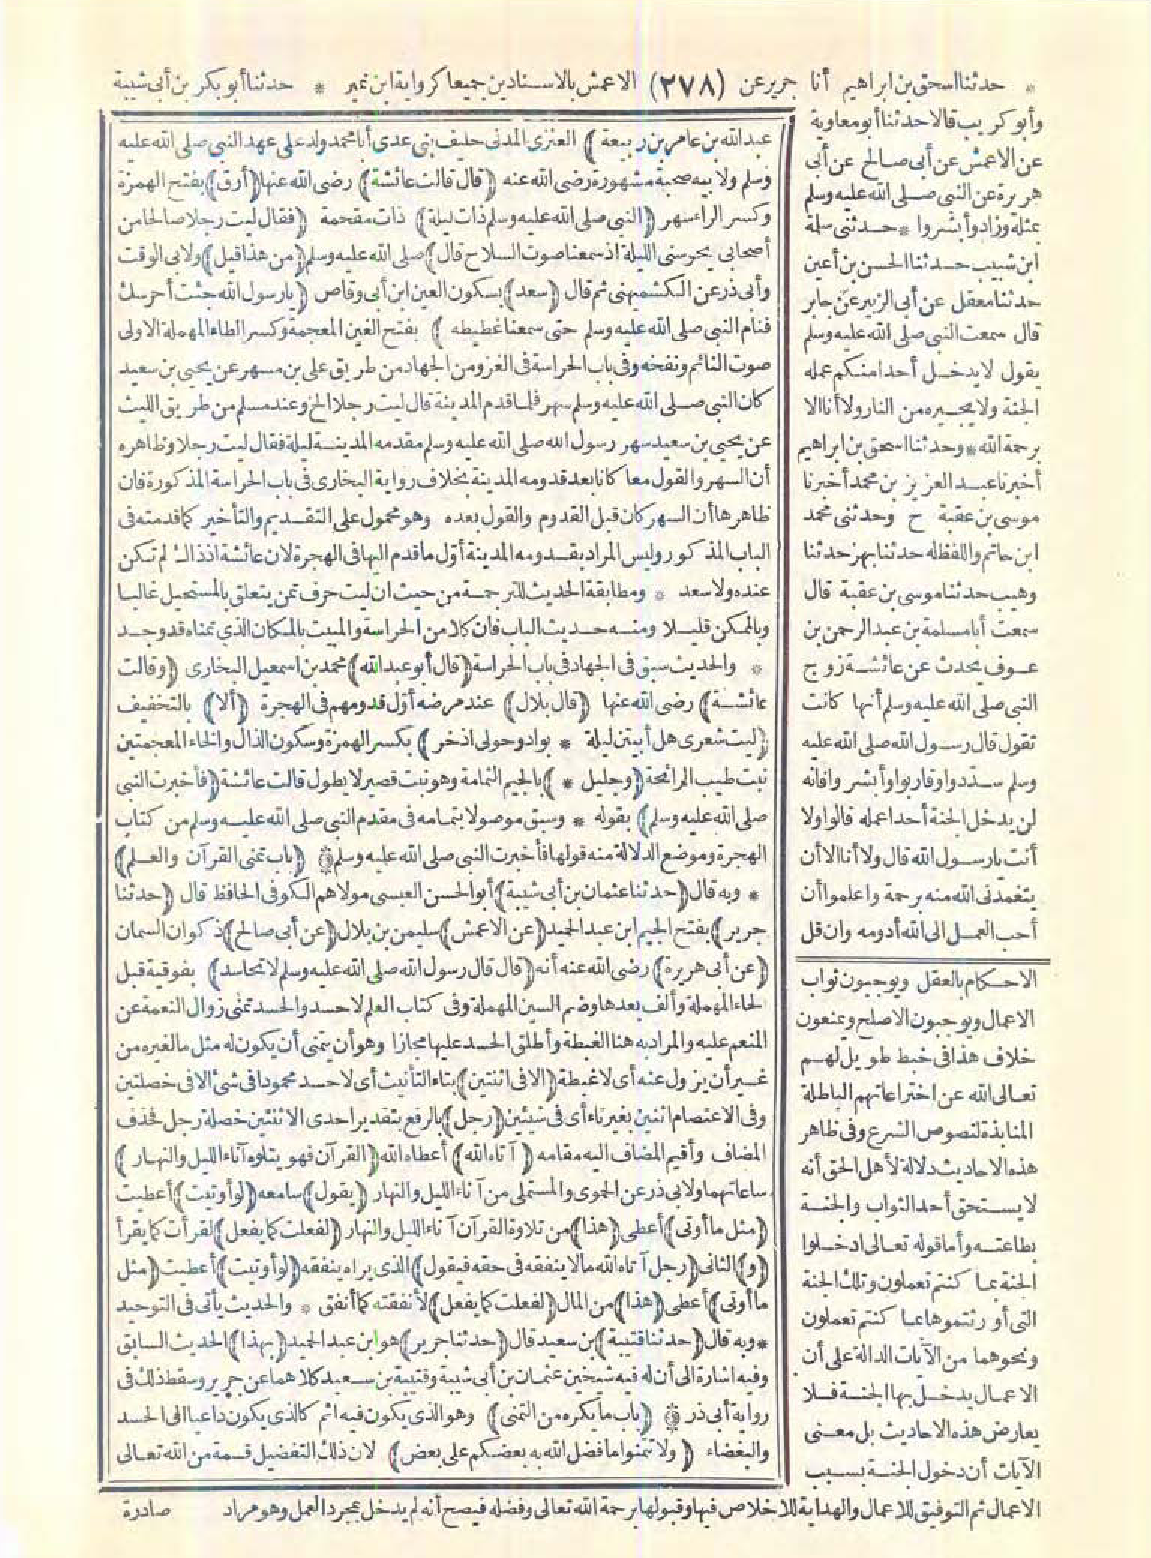 * حدثنا اسحق بن ابراهيم أنا جرير عن (٢٧٨) الاعمش بالاسنادين جميعا كرواية ابن نمير * حدثنا أبو بكر بن أبى شيبة
وأبو كريب قالا حدثنا أبو معاوية
عن الاعمش عن أبى صالح عن أبى
هريرة عن النبى صلى الله عليه وسلم
بمثله وزاد وأبشروا * حدثنى سلمة
ابن شبيب حدثنا الحسن بن أعين
حدثنا معقل عن أبى الزبير عن جابر
قال سمعت النبى صلى الله عليه وسلم
يقول لا يدخل أحدا منكم عمله
الجنة ولا يجيره من النار ولا أنا الا
برحمة الله * وحدثنا اسحق بن ابراهيم
أخبرنا عبد العزيز بن محمد أخبرنا
موسى بن عقبة ح وحدثنى محمد
ابن حاتم واللفظ له حدثنا بهز حدثنا
وهيب حدثنا موسى بن عقبة قال
سمعت أبا سلمة بن عبد الرحمن بن
عوف يحدث عن عائشة زوج
النبى صلى الله عليه وسلم أنها كانت
تقول قال رسول الله صلى الله عليه
وسلم سدّدوا وقاربوا وأبشروا فانه
لن يدخل الجنة أحدا عمله قالوا ولا
أنت يا رسول الله قال ولا أنا الا أن
يتغمدنى الله منه برحمة واعلموا أن
أحب العمل الى الله أدومه وان قل
الاحكام بالعقل ويوجبون ثواب
الاعمال ويوجبون الاصلح ويمنعون
خلاف هذا فى خبط طويل لهم
تعالى الله عن اختراعاتهم الباطلة
المنابذة لنصوص الشرع وفى ظاهر
هذه الاحاديث دلالة لأهل الحق أنه
لا يستحق أحد الثواب والجنة
بطاعته وأما قوله تعالى ادخلوا
الجنة بما كنتم تعملون وتلك الجنة
التى أورثتموها بما كنتم تعملون
ونحوهما من الآيات الدالة على أن
الاعمال يدخل بها الجنة فلا
يعارض هذه الاحاديث بل معنى
الآيات أن دخول الجنة بسبب
عبد الله بن عامر بن ربيعة) العنزى المدنى حليف بنى عدى أبا محمد ولد على عهد النبى صلى الله عليه
وسلم ولأبيه صحبة مشهورة رضى الله عنه (قال قالت عائشة) رضى الله عنها (أرق) بفتح الهمزة
وكسر الراء سهر (النبى صلى الله عليه وسلم ذات ليلة) ذات مقحمة (فقال ليت رجلا صالحا من
أصحابى يحرسنى الليلة اذ سمعنا صوت السلاح قال) صلى الله عليه وسلم (من هذا قيل) ولابى الوقت
وأبى ذر عن الكشميهنى ثم قال (سعد) بسكون العين ابن أبى وقاص (يا رسول الله جئت أحرسك
فنام النبى صلى الله عليه وسلم حتى سمعنا غطيطه) بفتح الغين المعجمة وكسر الطاء المهملة الاولى
صوت النائم ونفخه وفى باب الحراسة فى الغزو من الجهاد من طريق على بن مسهر عن يحيى بن سعيد
كان النبى صلى الله عليه وسلم سهر فلما قدم المدينة قال ليت رجلا الخ وعند مسلم من طريق الليث
عن يحيى بن سعيد سهر رسول الله صلى الله عليه وسلم مقدمه المدينة ليلة فقال ليت رجلا وظاهره
أن السهر والقول معا كانا بعد قدومه المدينة بخلاف رواية البخارى فى باب الحراسة المذكورة فان
ظاهرها أن السهر كان قبل القدوم والقول بعده وهو محمول على التقديم والتأخير كما قدمته فى
الباب المذكور وليس المراد بقدومه المدينة أوّل ما قدم اليها فى الهجرة لان عائشة اذ ذاك لم تكن
عنده ولا سعد * ومطابقة الحديث للترجمة من حيث ان ليت حرف تمن يتعلق بالمستحيل غالبا
وبالممكن قليلا ومنه حديث الباب فان كلا من الحراسة والمبيت بالمكان الذى تمناه قد وجد
* والحديث سبق فى الجهاد فى باب الحراسة (قال أبو عبد الله) محمد بن اسمعيل البخارى (وقالت
عائشة) رضى الله عنها (قال بلال) عند مرضه أوّل قدومهم فى الهجرة (ألا) بالتخفيف
(ليت شعرى هل أبيتن ليلة * بواد وحولى اذخر) بكسر الهمزة وسكون الذال والخاء المعجمتين
نبت طيب الرائحة (وجليل *) بالجيم الثمامة وهو نبت قصير لا يطول قالت عائشة (فأخبرت النبى
صلى الله عليه وسلم) بقوله * وسبق موصولا بتمامه فى مقدم النبى صلى الله عليه وسلم من كتاب
الهجرة وموضع الدلالة منه قولها فأخبرت النبى صلى الله عليه وسلم (باب تمنى القرآن والعلم)
* وبه قال (حدثنا عثمان بن أبى شيبة) أبو الحسن العبسى مولاهم الكوفى الحافظ قال (حدثنا
جرير) بفتح الجيم ابن عبد الحميد (عن الاعمش) سليمن بن بلال (عن أبى صالح) ذكوان السمان
(عن أبى هريرة) رضى الله عنه أنه (قال قال رسول الله صلى الله عليه وسلم لا تحاسد) بفوقية قبل
الحاء المهملة وألف بعدها وضم السين المهملة وفى كتاب العلم لا حسد والحسد تمنى زوال النعمة عن
المنعم عليه والمراد به هنا الغبطة وأطلق الحسد عليها مجازا وهو أن يتمنى أن يكون له مثل ما لغيره من
غير أن يزول عنه أى لا غبطة (الا فى اثنتين) بتاء التأنيث أى لا حسد محمودا فى شئ الا فى خصلتين
وفى الاعتصام اثنين بغير تاء أى فى شيئين (رجل) بالرفع بتقدير احدى الاثنتين خصلة رجل فحذف
المضاف وأقيم المضاف اليه مقامه (آتاه الله) أعطاه الله (القرآن فهو يتلوه آناء الليل والنهار)
ساعاتهما ولابى ذر عن الحموى والمستملى من آناء الليل والنهار (يقول) سامعه (لو أوتيت) أعطيت
(مثل ما أوتى) أعطى (هذا) من تلاوة القرآن آناء الليل والنهار (لفعلت كما يفعل) لقرأت كما يقرأ
(و) الثانى (رجل آتاه الله مالا ينفقه فى حقه فيقول) الذى يراه ينفقه (لو أوتيت) أعطيت (مثل
ما أوتى) أعطى (هذا) من المال (لفعلت كما يفعل) لأنفقته كما أنفق * والحديث يأتى فى التوحيد
* وبه قال (حدثنا قتيبة) بن سعيد قال (حدثنا جرير) هو ابن عبد الحميد (بهذا) الحديث السابق
وفيه اشارة الى أن له فيه شيخين عثمان بن أبى شيبة وقتيبة بن سعيد كلاهما عن جرير وسقط ذلك فى
رواية أبى ذر (باب ما يكره من التمنى) وهو الذى يكون فيه اثم كالذى يكون داعيا الى الحسد
والبغضاء (ولا تتمنوا ما فضل الله به بعضكم على بعض) لان ذلك التفضيل قسمة من الله تعالى
الاعمال ثم التوفيق للاعمال والهداية للاخلاص فيها وقبولها برحمة الله تعالى وفضله فيصح أنه لم يدخل بمجرد العمل وهو مراد صادرة